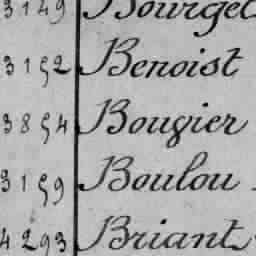 3149 Bourget
3152 Benoist
3854 Bougier
3159 Boulou
4293 Briant